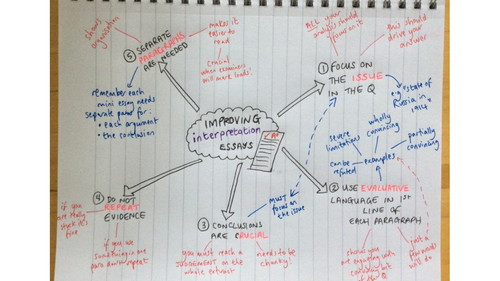 IMPROVING
interpretation
ESSAYS
① FOCUS ON
THE ISSUE
IN THE Q
ALL your
analysis should
focus on it
this should
drive your
answer
e.g state of
Russia in
② USE EVALUATIVE
LANGUAGE IN 1st
LINE OF
EACH PARAGRAPH
examples
severe
limitations
wholly
convincing
partially
convincing
can be
refuted
just a
few words
will do
shows you
are engaging with
convincing bit
of the Q
③ CONCLUSIONS
ARE CRUCIAL
must
focus on
the issue
You must reach a
JUDGEMENT on the
whole extract
needs to be
chunky!
④ DO NOT
REPEAT
EVIDENCE
if you
are really
stuck it's
fine
if you
⑤ SEPARATE
PARAGRAPHS
ARE NEEDED
shows
organisation
makes it
easier to
read
Crucial
when examiners
will mark loads.
remember each
mini essay needs
separate paras for:
• each argument
• the conclusion